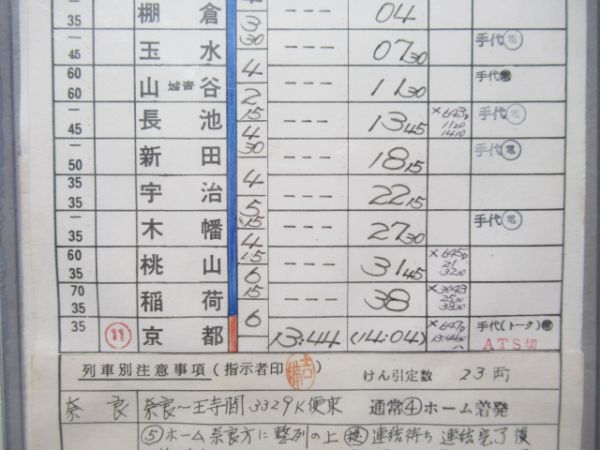 35 棚倉 3 --- 04
30
— 45 玉水 --- 07 30 手代 電
4
60 60 山城青谷 --- 11 30 手代
2
15
— 45 長池 --- 13 45 ×643D 1120 1410 手代 電
4
30
— 50 新田 --- 18 15 手代 電
4
35 35 宇治 --- 22 15
5
15
— 35 木幡 --- 27 30 手代 電
4
15
60 35 桃山 --- 31 45 ×645D 21 3220
6
15
70 35 稲荷 --- 38
6
35 11 京都 13:44 (14:04) ×647D 手代(トーク)
ATS切
列車別注意事項(指示者印) けん引定数 23両
奈良 奈良〜王寺間3329K便乗 通常④ホーム着発
⑤ホーム奈良方に整列の上 連結待ち 連結完了後